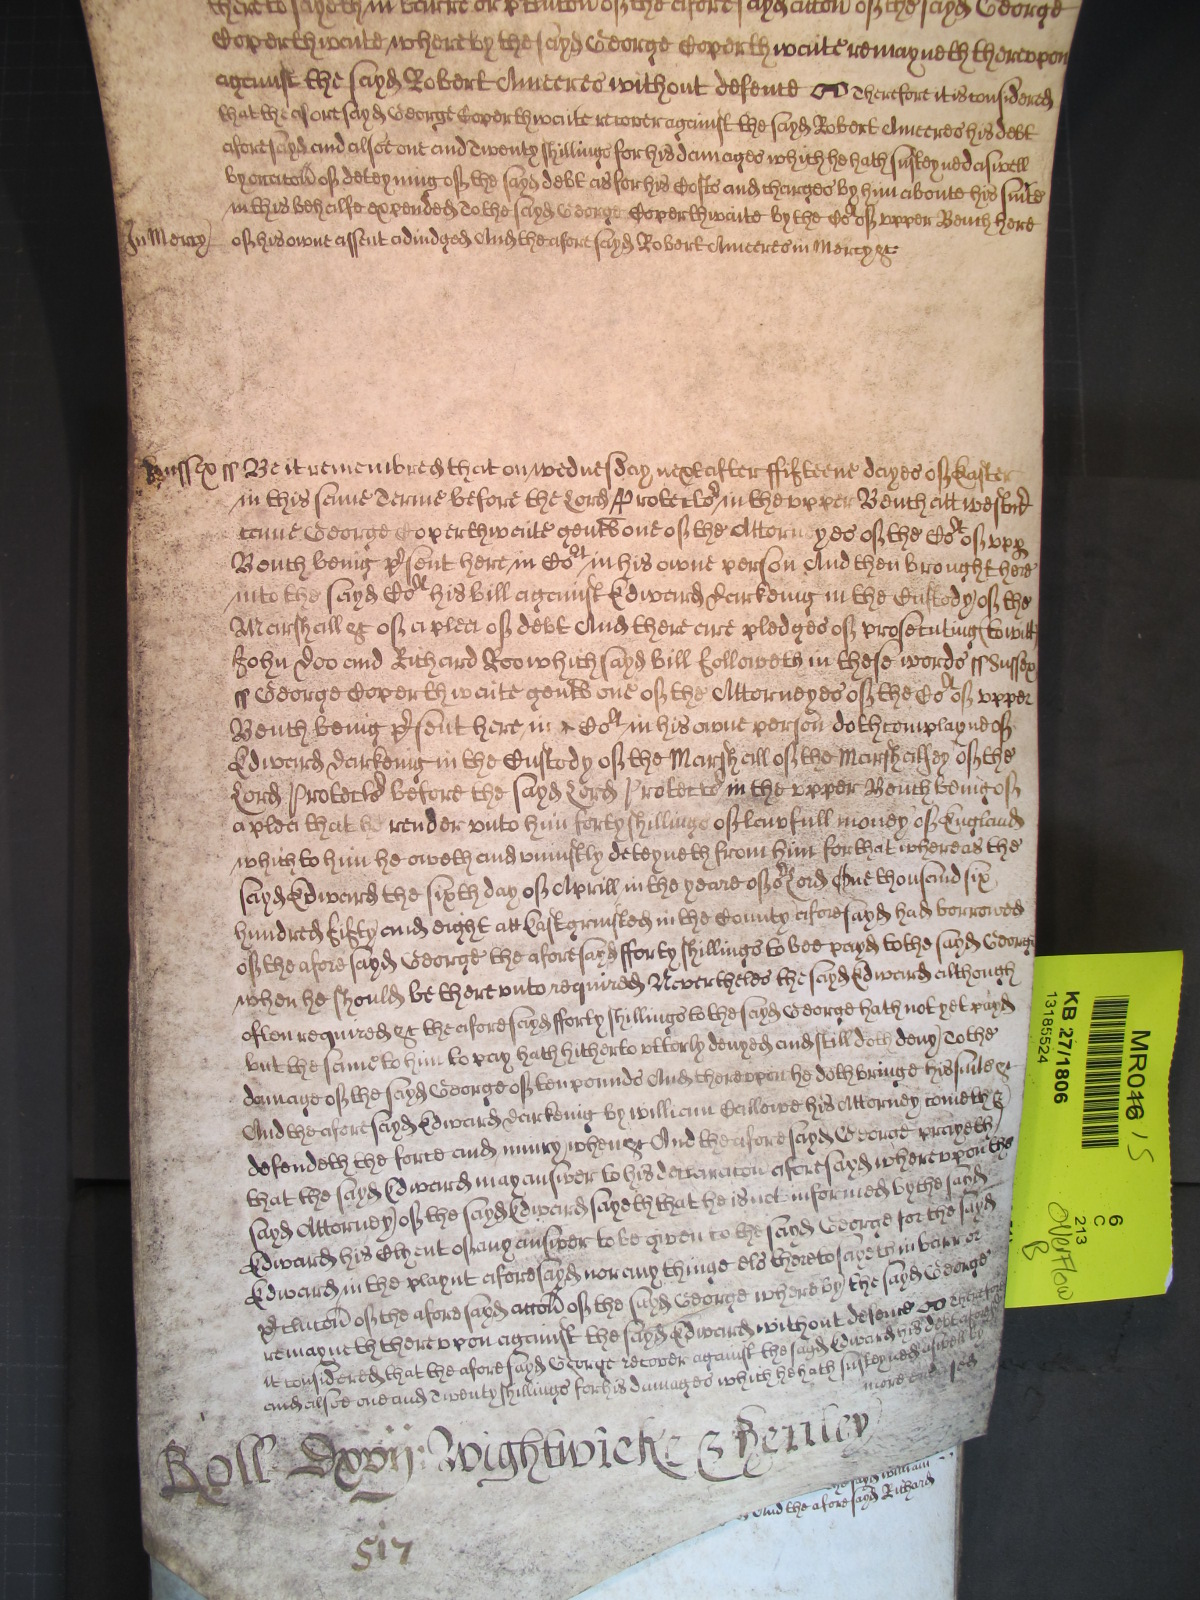 thereto sayeth in barre or p̱clusion of the aforesayd accōn of the sayd George
Coperthwaite whereby the sayd George Coperthwaite remayneth thereupon
against the sayd Robert Amceres without defence Therefore it is considered
that the aforesayd George Coperthwaite recover against the sayd Robert Amceres his debt
aforesayd and alsoe one and Twenty shillings for his damages which he hath susteyned aswell
by occacōn of deteyning of the sayd debt as for his Costs and charges by him aboute his suite
in this behalfe expended To the sayd George Coperthwaite by the Cort of upper Bench here
In Mercy of his owne assent adiudged And the aforesayd Robert Amceres in Mercy &c
Sussex ss Be it remembred that on wednesday next after ffifteene dayes of Easter
in this same Terme before the Lord Protector in the upper Bench att westmr
came George Coperthwaite gent one of the Attorneyes of the Cort of upp
Bench being p̱sent here in Cort in his owne person And then brought here
into the sayd Cort his bill against Edward Larkeing in the Custody of the
Marshall &c of a plea of debt And there are pledges of prosecuting to witt
John Doo and Richard Roo which sayd bill followeth in these words ss Sussex
ss George Coperthwaite gent one of the Attorneyes of the Cort of upper
Bench being p̱sent here in Cort in his owne person doth complayne of
Edward Larkeing in the Custody of the Marshall of the Marshalsey of the
Lord Protector before the sayd Lord Protector in the upper Bench being of
a plea that he render unto him forty shillings of lawfull money of England
which to him he oweth and uniustly deteyneth from him for that whereas the
sayd Edward the sixth day of Aprill in the yeare of or Lord One thousand six
hundred fifty and eight att Eastgrinsted in the County aforesayd had borrowed
of the aforesayd George the aforesayd fforty shillings to bee payd to the sayd George
when he should be thereunto required Neverthelesse the sayd Edward although
often required &c the aforesayd fforty shillings to the sayd George hath not yet payd
but the same to him to pay hath hitherto utterly denyed and still doth deny To the
damage of the sayd George of ten pounds And thereupon he doth bringe his suite &c
And the aforesayd Edward Larkeing by william Callowe his Attorney cometh &
defendeth the force and iniury when &c And the aforesayd George prayeth
that the sayd Edward may answer to his declaracōn aforesayd whereupon the
sayd Attorney of the sayd Edward sayeth that he is not informed by the sayd
Edward his Clyent of any answer to be given to the sayd George for the sayd
Edward in the playnt aforesayd nor any thinge els thereto sayeth in barr or
p̱clusiōn of the aforesayd accōn of the sayd George whereby the sayd George
remayneth thereupon against the sayd Edward without defence Therefore
it is considered that the aforesayd George recover against the sayd Edward his debt aforesayd
and alsoe one and Twenty shillings for his damages which he hath susteyned aswell by
more endorsed
Roll Dxvij: Wightwicke & Henley
517
the sayd william
And the aforesayd Richard
MR048 / S
KB 27/1806
13185524
6
C
213
Overflow
8